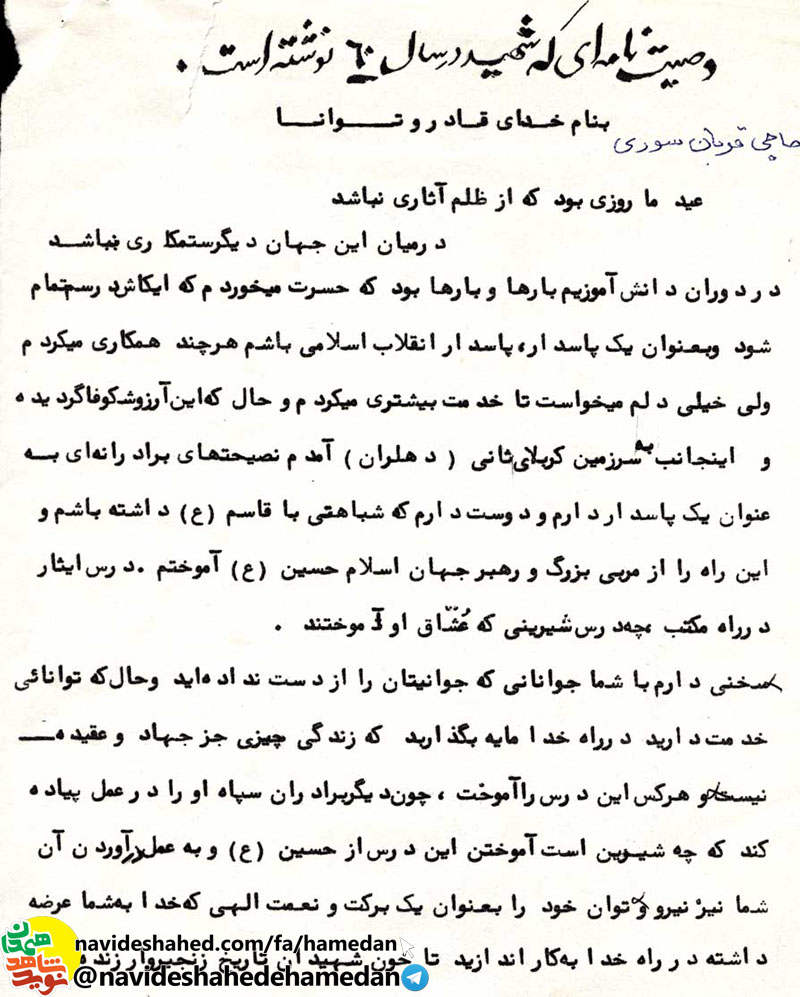 وصیت نامه‌ای که شهید در سال ۶۰ نوشته است .
بنام خدای قادر و توانا
حاجی قربان سوری
عید ما روزی بود که از ظلم آثاری نباشد
درمیان این جهان دیگرستمکاری نباشد
در دوران دانش آموزیم بارها و بارها بود که حسرت میخوردم که ایکاش درسم تمام
شود وبعنوان یک پاسدار، پاسدار انقلاب اسلامی باشم هرچند همکاری میکردم
ولی خیلی دلم میخواست تا خدمت بیشتری میکردم و حال که این آرزو شکوفا گردیده
و اینجانب به سرزمین کربلای ثانی (دهلران) آمدم نصیحتهای برادرانه‌ای به
عنوان یک پاسدار دارم و دوست دارم که شباهتی با قاسم (ع) داشته باشم و
این راه را از مربی بزرگ و رهبر جهان اسلام حسین (ع) آموختم . درس ایثار
درراه مکتب چه درس شیرینی که عُشّاق او آموختند .
سخنی دارم با شما جوانانی که جوانیتان را از دست نداده‌اید وحال که توانائی
خدمت دارید درراه خدا مایه بگذارید که زندگی چیزی جز جهاد و عقیده
نیست و هرکس این درس را آموخت ، چون دیگربرادران سپاه او را در عمل پیاده
کند که چه شیرین است آموختن این درس از حسین (ع) و به عمل درآوردن آن
شما نیز نیرو و توان خود را بعنوان یک برکت و نعمت الهی که خدا به شما عرضه
داشته در راه خدا به کار اندازید تا چون شهیدان تاریخ زنجیروار زنده
navideshahed.com/fa/hamedan
@navideshahedehamedan
نوید شاهد همدان